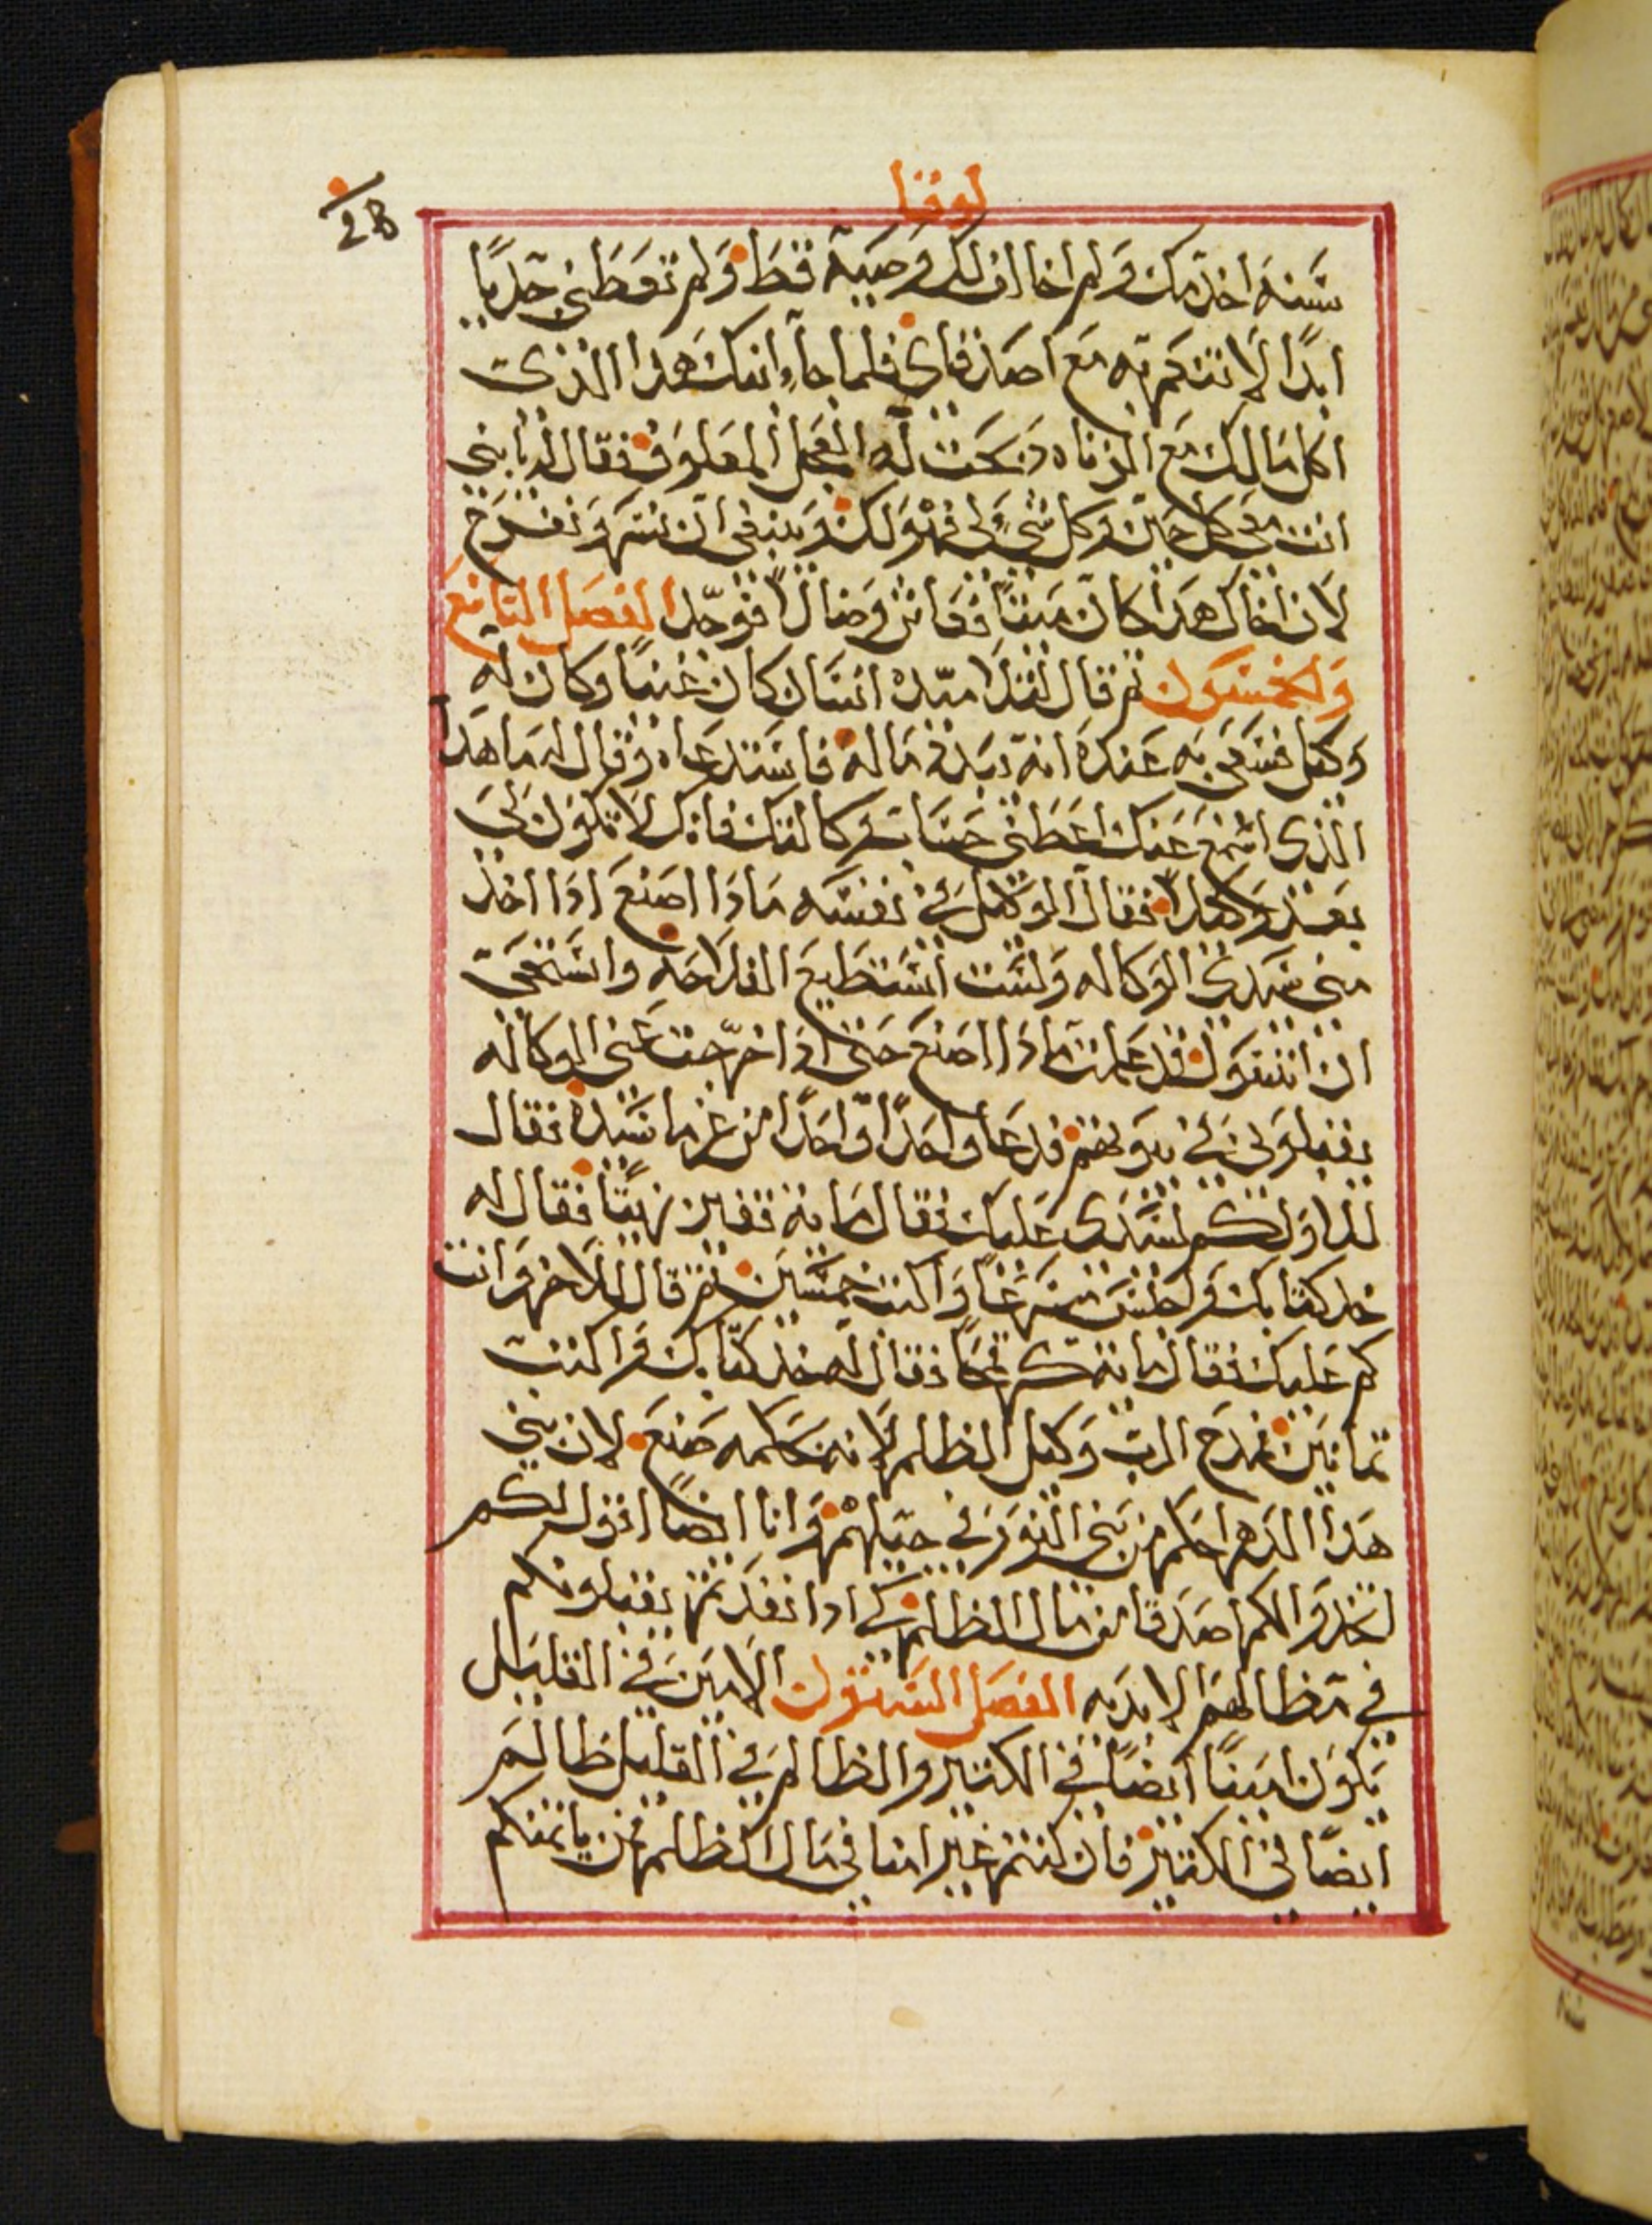 لوقا
سنة اخدمك ولم اخالف لك وصية قط ولم تعطني جديًا
ابدًا لاتنعم به مع اصدقاي فلما جاء ابنك هدا الذي
اكل مالك مع الزناه دبحت له العجل المعلوف فقال له يا بني
انت معي كل حين وكل شي لي فهو لك وينبغي ان نسر ونفرح
لان اخاك هدا كان ميتًا فعاش وضالًا فوجد الفصل التاسع
والخمسون ثم قال لتلاميده انسان كان غنيًا وكان له
وكيل فسعي به عنده انه يبدد ماله فاستدعاه وقال له ما هدا
الذي اسمع عنك اعطني حساب وكالتك فانك لا تكون لي
بعد وكيلًا فقال الوكيل في نفسه مادا اصنع ادا اخذ
مني سيدي الوكاله ولست استطيع الفلاحه واستحي
ان اتسول قد علمت مادا اصنع حتى ادا خرجت عني الوكاله
يقبلوني في بيوتهم فدعا واحدًا واحدًا من غرما سيده فقال
للاول كم لسيدي عليك فقال مايه قفيز زيتًا فقال له
خد كتابك واجلس سرعًا واكتب خمسين ثم قال للاخر وانت
كم عليك فقال مايه كر قمحًا فقال له خذ كتابك واكتب
تمانين فمدح الرب وكيل الظلم لانه بحكمه صنع لان بني
هدا الدهر احكم من بني النور في جيلهم وانا ايضًا اقول لكم
اتخدوا لكم اصدقا من مال الظلم لكي ادا نفدتم يقبلونكم
في مظالهم الابديه الفصل الستون الامين في القليل
يكون امينًا ايضًا في الكتير والظالم في القليل ظالم
ايضًا في الكتير فان كنتم غير امنا في مال الظلم فمن يامنكم